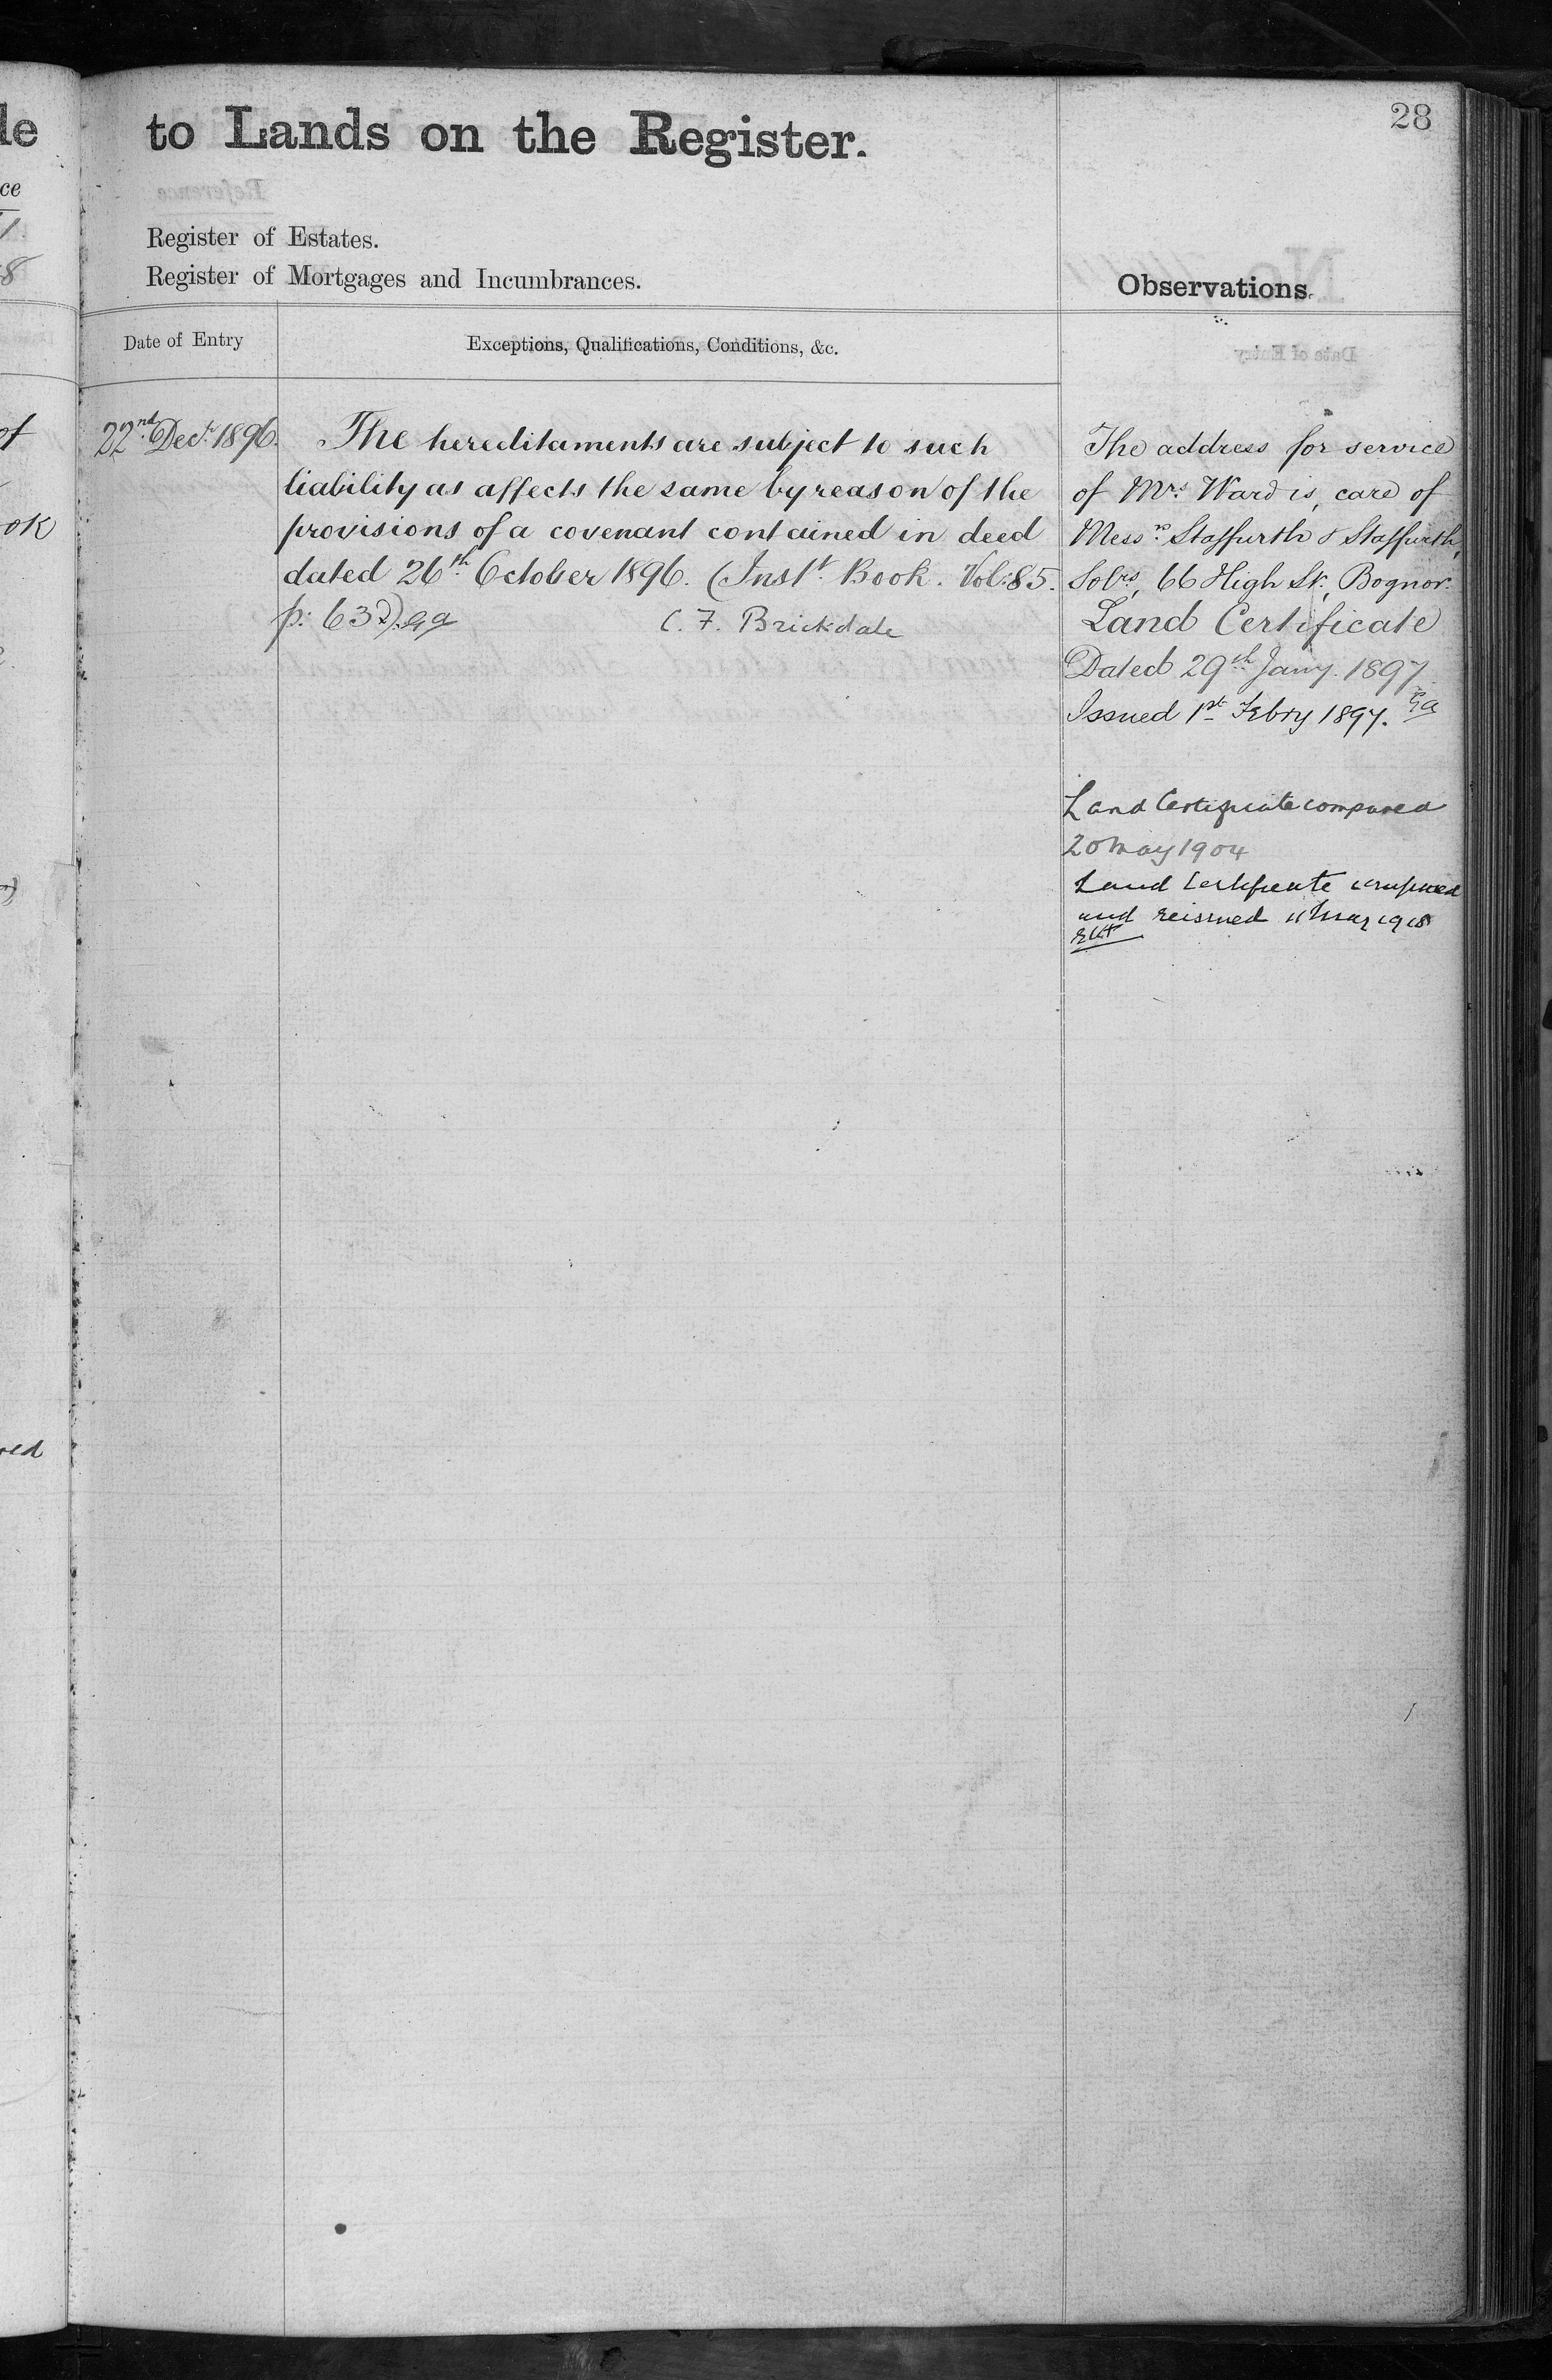 28
to Lands on the Register.
Register of Estates.
Register of Mortgages and Incumbrances.
Observations.
Date of Entry
Exceptions, Qualifications, Conditions, &c.
22nd Decr. 1896.
The hereditaments are subject to such
liability as affects the same by reason of the
provisions of a covenant contained in deed
dated 26th October 1896. (Inst. Book. Vol: 85.
p: 63
C. F. Brickdale
The address for service
of Mrs. Ward is, care of
Messrs. Staffurth & Staffurth,
Solrs, 66 High St., Bognor.
Land Certificate
Dated 29th Jany. 1897
Issued 1st Febry 1897.
Land Certificate compared
20 May 1904
Land Certificate compared
and reissued 11 May 1918
le
ce
1.
8
of
ok
red